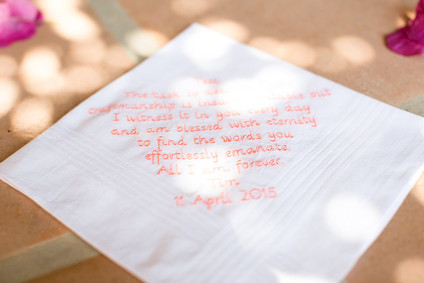 The task is
craftsmanship is in
I witness it in you every day
and am blessed with eternity
to find the words you
effortlessly emanate.
All I am, forever,
11 April 2015